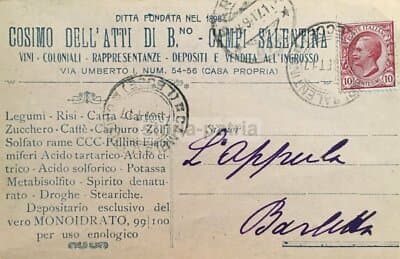 DITTA FONDATA NEL 1898
COSIMO DELL'ATTI DI B.NO - CAMPI SALENTINA
VINI - COLONIALI - RAPPRESENTANZE - DEPOSITI E VENDITA ALL'INGROSSO
VIA UMBERTO I, NUM. 54-56 (CASA PROPRIA)
POSTE ITALIANE
10 10
Legumi - Risi - Carta - Cartoni
Zucchero - Caffè - Carburo - Zolfi
Solfato rame CCC - Pallini
miferi Acido tartarico - Acido ci-
trico - Acido solforico - Potassa
Metabisolfito - Spirito denatu-
rato - Droghe - Steariche.
Depositario esclusivo del
vero MONOIDRATO, 99|100
per uso enologico
L'Appula
Barletta